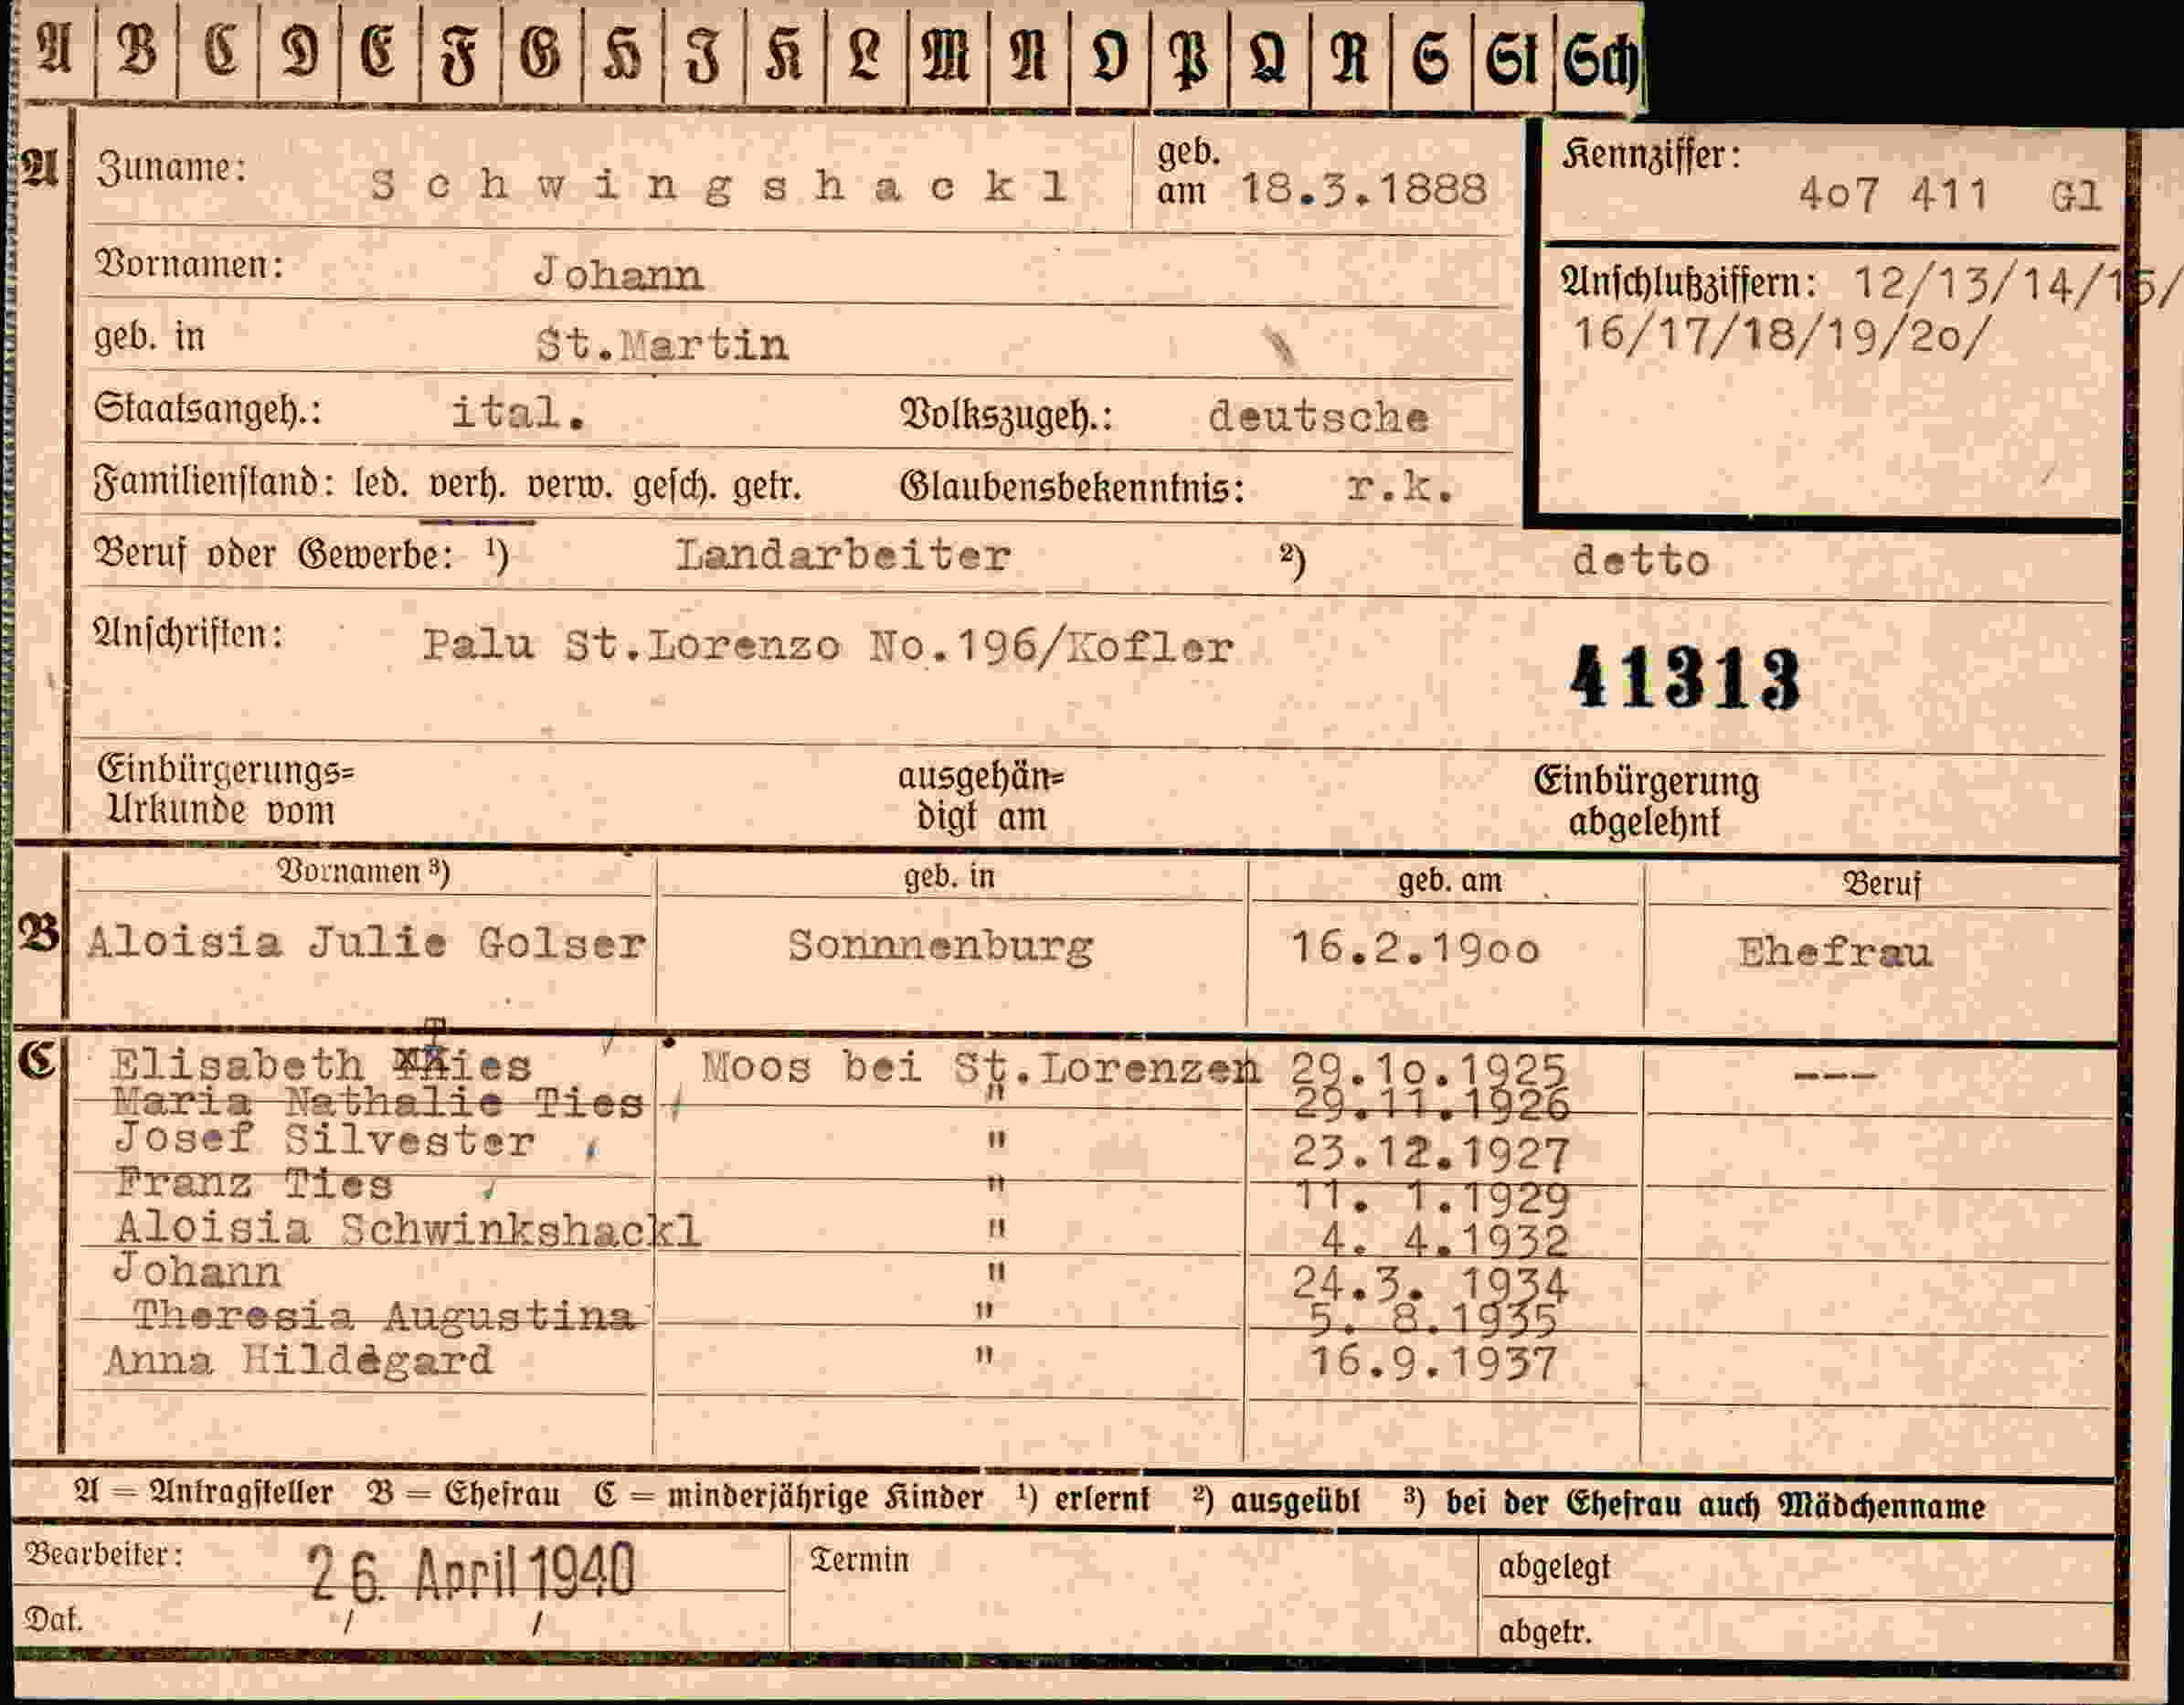 A B C D E F G H I K L M N O P Q R S St Sch
A Zuname: Schwingshackl geb. am 18.3.1888 Kennziffer: 4o7 411 Gl
Vornamen: Johann
Anschlußziffern: 12/13/14/15/
16/17/18/19/2o/
geb. in St.Martin
Staatsangeh.: ital. Volkszugeh.: deutsche
Familienstand: led. verh. verw. gesch. getr. Glaubensbekenntnis: r.k.
Beruf oder Gewerbe: ¹) Landarbeiter ²) detto
Anschriften: Palu St.Lorenzo No.196/Kofler
41313
Einbürgerungs= Urkunde vom ausgehän= digt am Einbürgerung abgelehnt
Vornamen ³) geb. in geb. am Beruf
B Aloisia Julie Golser Sonnnenburg 16.2.19oo Ehefrau
C Elisabeth Ties Moos bei St.Lorenzen 29.1o.1925 ---
Maria Nathalie Ties " 29.11.1926
Josef Silvester " 23.12.1927
Franz Ties " 11. 1.1929
Aloisia Schwinkshackl " 4. 4.1932
Johann " 24.3. 1934
Theresia Augustina " 5. 8.1935
Anna Hildegard " 16.9.1937
A = Antragsteller B = Ehefrau C = minderjährige Kinder ¹) erlernt ²) ausgeübt ³) bei der Ehefrau auch Mädchenname
Bearbeiter: 26. April 1940 Termin abgelegt
Dat. abgetr.